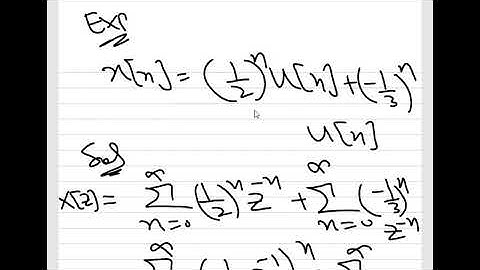 Exp
x[n] = (1/2)^n u[n] + (-1/3)^n
u[n]
Sol
X[z] = ∞∑n=0 (1/2)^n z^-n + ∞∑n=0 (-1/3)^n z^-n